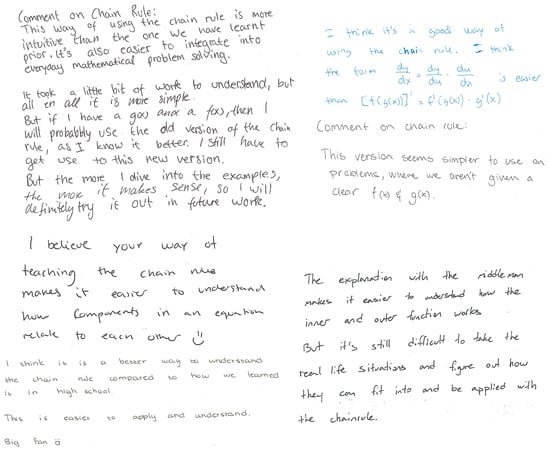 Comment on Chain Rule:
This way of using the chain rule is more
intuitive than the one we have learnt
prior. It's also easier to integrate into
everyday mathematical problem solving.
It took a little bit of work to understand, but
all en all it is more simple.
But if I have a g(x) and a f(x), then I
will probablby use the old version of the chain
rule, as I know it better. I still have to
get use to this new version.
But the more I dive into the examples,
the more it makes sense, so I will
definitely try it out in future work.
I think it's a good way of
using the chain rule. I think
the form dy/dx = dy/du · du/dx is easier
than [f(g(x))]' = f'(g(x)) · g'(x)
Comment on chain rule:
This version seems simpler to use on
problems, where we aren't given a
clear f(x) & g(x).
I believe your way of
teaching the chain rule
makes it easier to understand
how components in an equation
relate to each other ☺
I think it is a better way to understand
the chain rule compared to how we learned
is in high school.
This is easier to apply and understand.
Big fan ☺
The explanation with the middleman
makes it easier to understand how the
inner and outer function works
But it's still difficult to take the
real life situations and figure out how
they can fit into and be applied with
the chainrule.